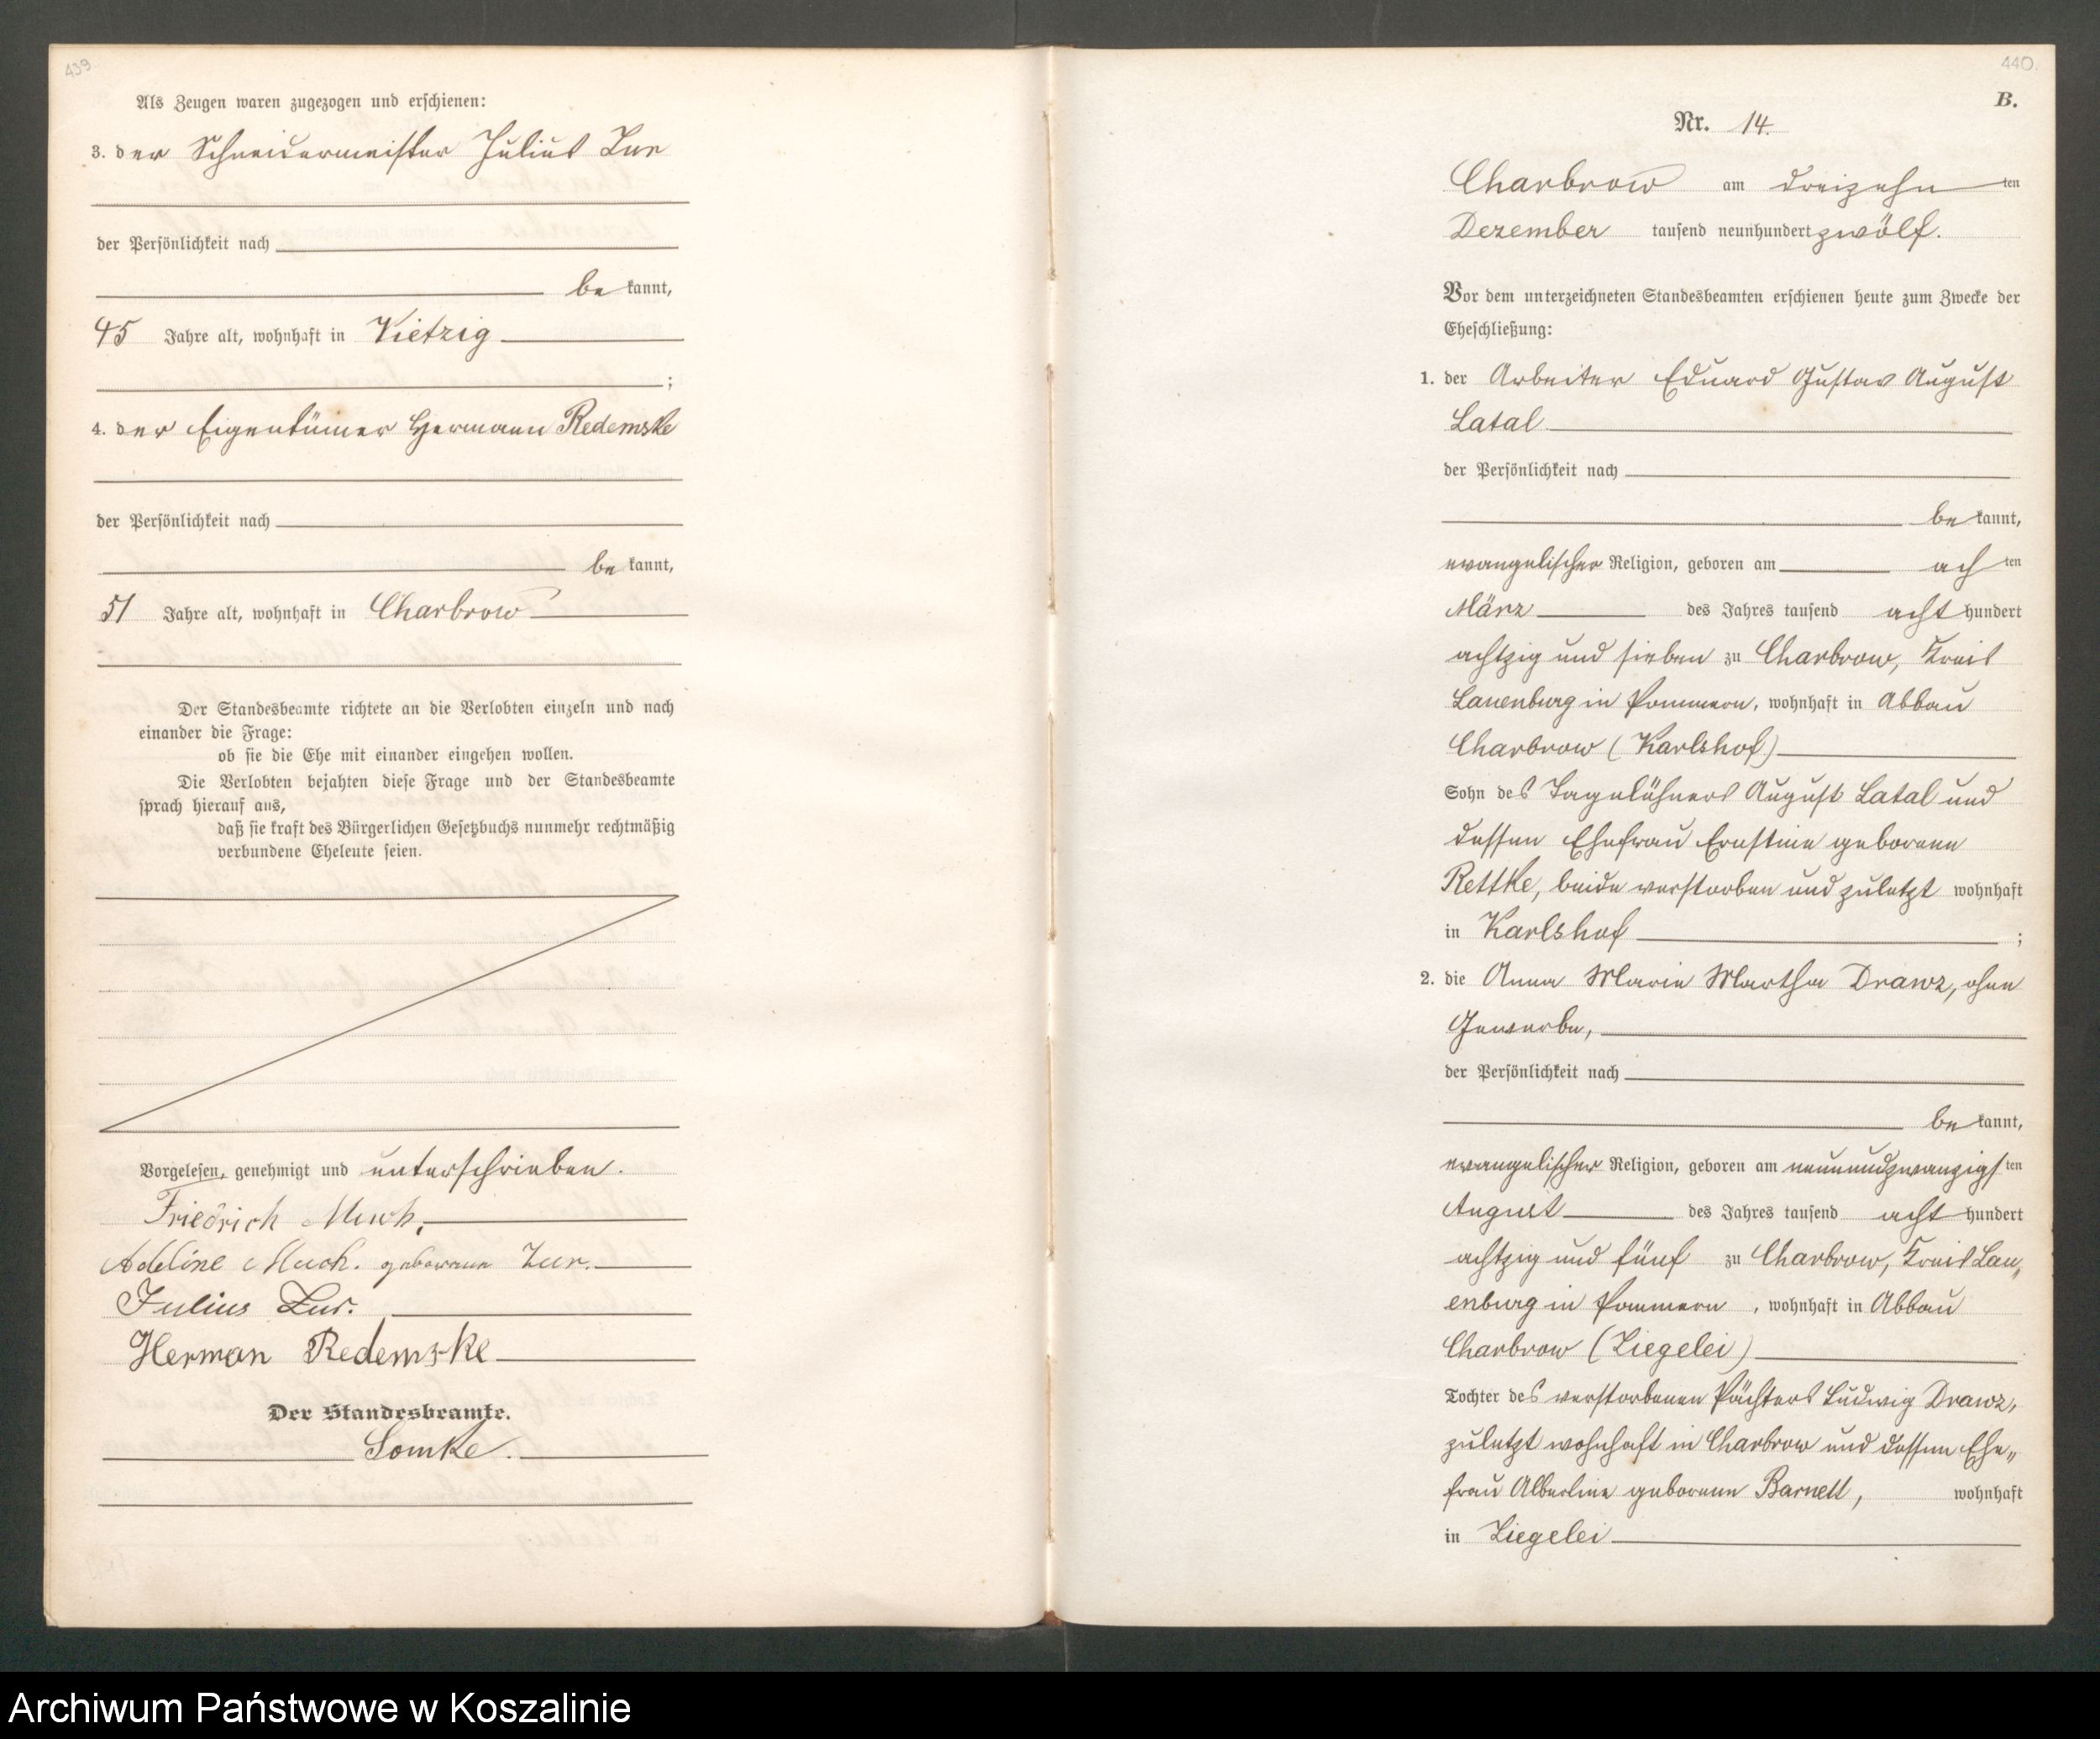 439
Als Zeugen waren zugezogen und erschienen:
3. der Schneidermeister Julius Zur
der Persönlichkeit nach
be kannt,
45 Jahre alt, wohnhaft in Vietzig
;
4. der Eigentümer Hermann Redemske
der Persönlichkeit nach
be kannt,
51 Jahre alt, wohnhaft in Charbrow
Der Standesbeamte richtete an die Verlobten einzeln und nach
einander die Frage:
ob sie die Ehe mit einander eingehen wollen.
Die Verlobten bejahten diese Frage und der Standesbeamte
sprach hierauf aus,
daß sie kraft des Bürgerlichen Gesetzbuchs nunmehr rechtmäßig
verbundene Eheleute seien.
Vorgelesen, genehmigt und unterschrieben.
Friedrich Much.
Adeline Much. geborene Zur.
Julius Zur.
Herman Redemske
Der Standesbeamte.
Lomke.
440.
B.
Nr. 14.
Charbrow am dreizehn ten
Dezember tausend neunhundert zwölf.
Vor dem unterzeichneten Standesbeamten erschienen heute zum Zwecke der
Eheschließung:
1. der Arbeiter Eduard Gustav August
Latal
der Persönlichkeit nach
be kannt,
evangelischer Religion, geboren am ach ten
März des Jahres tausend acht hundert
achtzig und sieben zu Charbrow, Kreis
Lauenburg in Pommern, wohnhaft in Abbau
Charbrow (Karlshof)
Sohn des Tagelöhners August Latal und
dessen Ehefrau Ernstine geborene
Rettke, beide verstorben und zuletzt wohnhaft
in Karlshof ;
2. die Anna Marie Martha Drawz, ohne
Gewerbe,
der Persönlichkeit nach
be kannt,
evangelischer Religion, geboren am neunundzwanzigs ten
August des Jahres tausend acht hundert
achtzig und fünf zu Charbrow, Kreis Lau„
enburg in Pommern, wohnhaft in Abbau
Charbrow (Ziegelei)
Tochter des verstorbenen Pächters Ludwig Drawz,
zuletzt wohnhaft in Charbrow und dessen Ehe„
frau Albertine geborene Barnett, wohnhaft
in Ziegelei
Archiwum Państwowe w Koszalinie